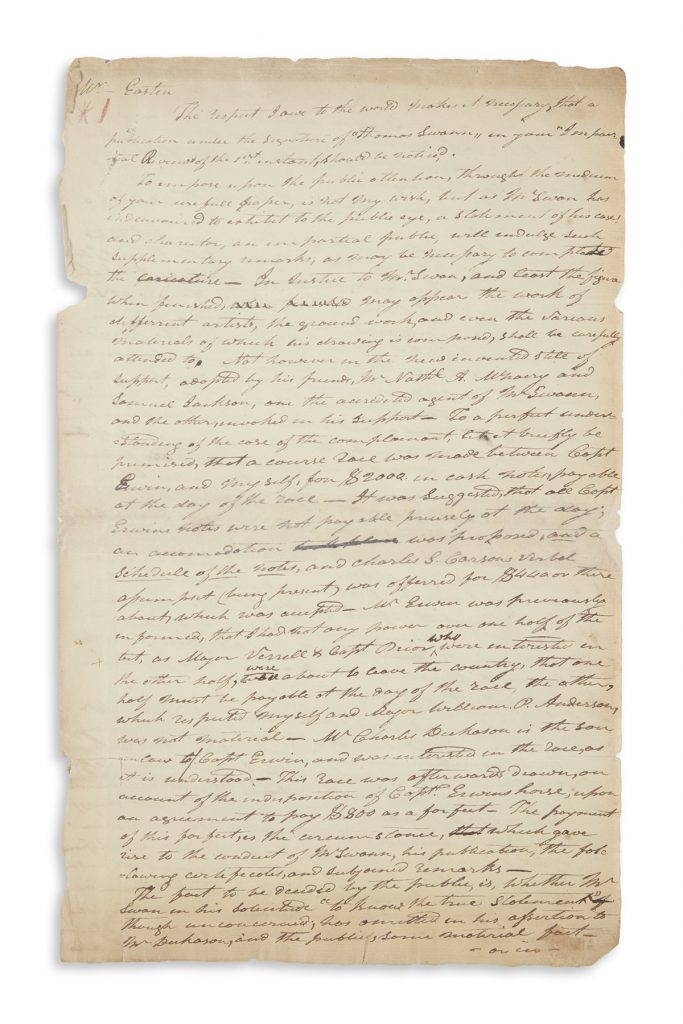 Mr Eastin
* 1
The respect I owe to the world makes it necessary, that a
publication under the signature of "Thomas Swann," in your "Impar-
tial Review of the 1st instant, should be noticed.
To impose upon the public attention, through the medium
of your usefull paper, is not my wish, but as Mr Swan has
endeavoured to exhibit to the public eye, a statement of his case,
and charector, an impartial public, will indulge such
supplementary remarks, as may be necessary to complete
the caricature — In Justice to Mr Swan, and least the figure
when finished, may appear the work of
different artists, the ground work, and even the various
materials of which his drawing is composed, shall be carefully
attended to. Not however in the new invented stile of
support, adopted by his friends, Mr Nathl A. McNairy and
Samuel Jackson, one the accredited agent of Mr Swann,
and the other, invoked in his support — To a perfect under
standing of the case of the complainant, let it briefly be
premised, that a course race was made between Capt
Erwin, and myself, for $2000 in cash notes, payable
at the day of the race — It was suggested, that all Capt
Erwins notes were not payable precisely at the day;
an accomodation was proposed, and a
schedule of the notes, and charles S. Carsons verbal
asumpset (being present) was offerred for $440 or there
about, which was accepted — Mr Erwin was previously
informed, that I had not any power over one half of the
bet, as Major Verrell & Capt Prior, who were interested in
the other half, were about to leave the country, that one
half must be payable at the day of the race, the other,
which respected myself and Major William P. Anderson,
was not material — Mr Charles Dickason is the son
in law to Capt Erwin, and was interested in the race, as
it is understood — This race was afterwards drawn, on
account of the indisposition of Capt. Erwins horse, upon
an agreement to pay $800 as a forfeit — The payment
of this forfeit, is the circumstance, which gave
rise to the conduct of Mr Swann, his publication, the fol-
lowing certefecates, and subjoined remarks —
The fact to be decided by the public, is, whether Mr
Swan in his solicitude "to know the true statement"
though unconcerned, has omitted in his assertion to
Mr Dickason, and the public, some material fact —
— or in —